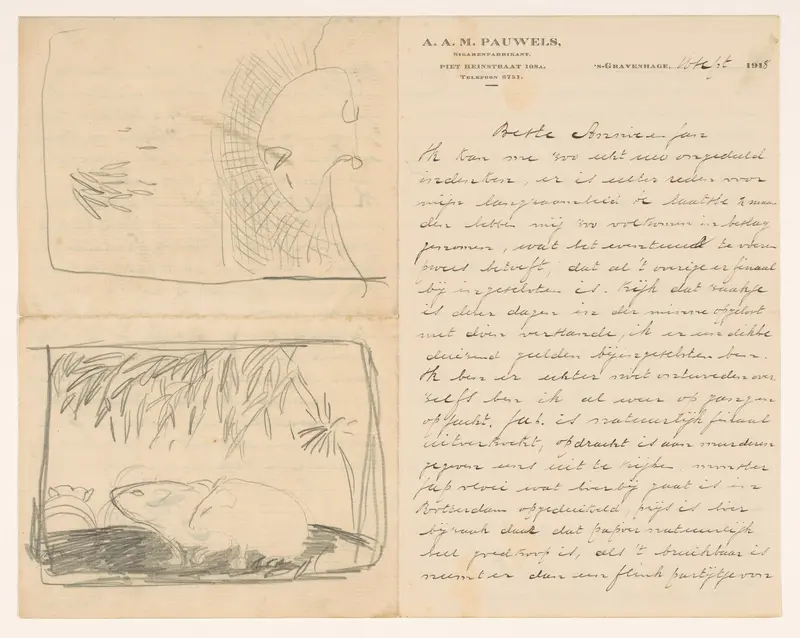 A. A. M. PAUWELS,
SIGARENFABRIKANT.
PIET HEINSTRAAT 108A.
TELEFOON 6751.
'S-GRAVENHAGE, Sept 1918
Beste Annie en Jan
Ik kan me zoo echt uw ongeduld
indenken, er is echter reden voor
mijn langzaamheid de laatste maan
den hebben mij zoo volkomen in beslag
genomen, wat het eventueel te voren
betreft, dat al 't overige er finaal
bij ingeschoten is. Kijk dat zaakje
is dezer dagen in der minne opgelost
met dien verstande, ik er een dikke
duizend gulden bij ingeschoten ben.
Ik ben er echter niet ontevreden over
zelfs ben ik al weer op
op jacht. Jap. is natuurlijk finaal
uitverkocht, opdracht is aan
gegeven eens uit te kijken, monster
Jap vloei wat hierbij gaat is in
Rotterdam opgeduikeld, prijs is hier
bijzaak daar dat papier natuurlijk
heel goedkoop is, als 't bruikbaar is
neemt er dan een flink partijtje von